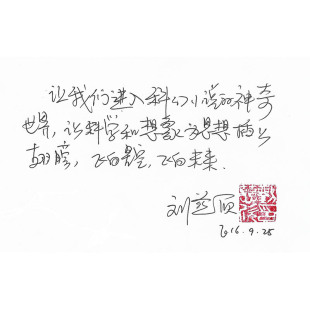 让我们进入科幻小说的神奇
世界，让科学和想象为思想插上
翅膀，飞向星空，飞向未来.
刘慈
2016.9.28